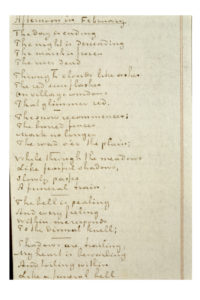 Afternoon in February.
The day is ending
The night is descending
The marsh is frozen
The river dead
Through clouds like ashes
The red sun flashes
On village windows
That glimmer red.
The snow recommences;
The buried fences
Mark no longer
The road o'er the plain;
While through the meadows
Like fearful shadows,
Slowly passes
A funeral train.
The bell is pealing
And every feeling
Within me responds
To the dismal knell;
Shadows are trailing,
My heart is bewailing
And tolling within
Like a funeral bell